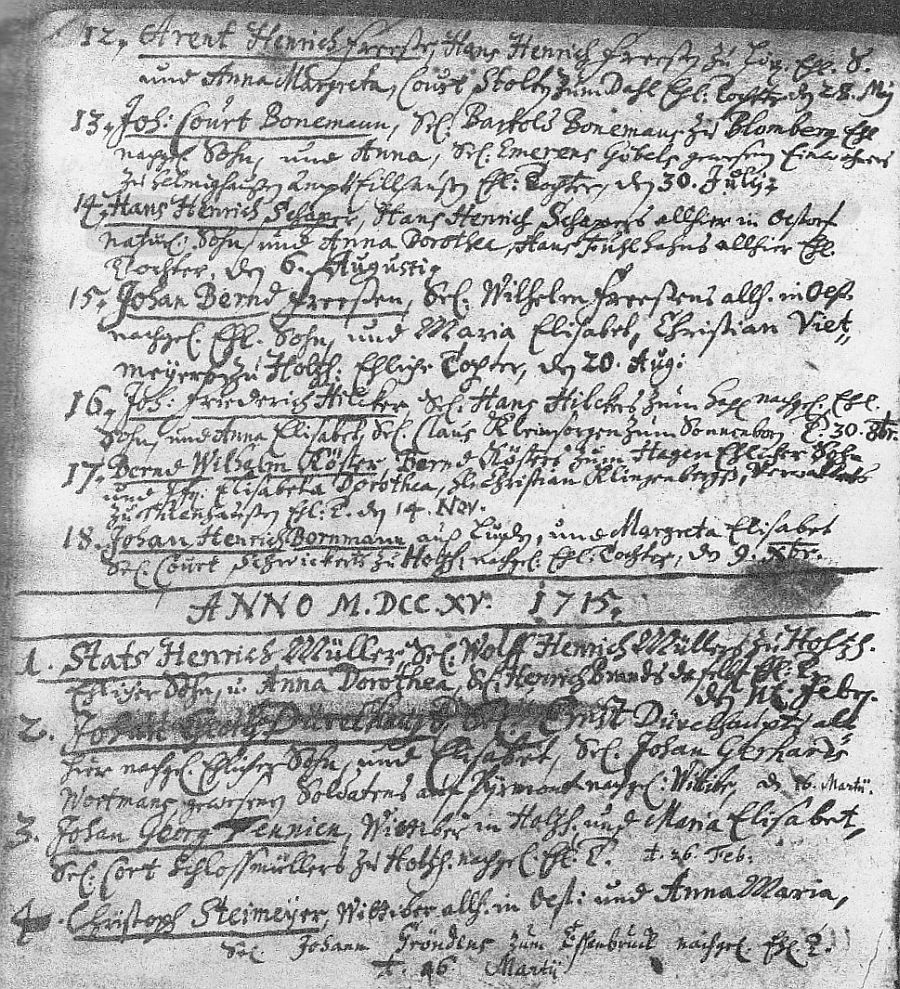 12, Arent Henrich Freese, Hans Henrich Freesen zu Ehl. S.
und Anna Margreta, Court Stolten zum Dahl Ehl: Tochter den 28. Maij
13, Joh: Court Bonemann, Sel: Bartols Bonemans zu Blomberg Ehl
nachgel. Sohn, und Anna, Sel: Emerens Göbels gewesen Einwohners
zu Ehl: Tochter, den 30. Julij
14, Hans Henrich Schaper, Hans Henrich Schapers allhier in Oestorf
natürl: Sohn, und Anna Dorothea, Hans allhier Ehl.
Tochter, den 6. Augusti
15, Johan Bernd Freesen, Sel: Wilhelm Freesens allh. in Oest.
nachgel. Ehl. Sohn, und Maria Elisabet, Christian Viet„
meyers zu Holtzh: Ehliche Tochter, den 20. Aug:
16, Joh: Friederich Hilcker, Sel: Hans Hilckers zum nachgel. Ehl.
Sohn, und Anna Elisabet, Sel. Claus Kleinsorgen zum Sonnenborn T. 30.
17, Bernd Wilhelm Köster, Bernd Kösters zum Hagen Ehlicher Sohn
und Elisabeta Dorothea, Christian Klingenbergs, Verwalters
zu Ehl: T. den 14. Nov.
18. Johan Henrich Bornmann auß Lugde, und Margreta Elisabet
Sel. Court Schwickerts zu Holtzh: nachgel. Ehl: Tochter, den 9. xbr.
ANNO M.DCC.XV. 1715.
1. Stats Henrich Müller, Sel: Wolff Henrich Müllers zu Holtzh.
Ehlicher Sohn, u. Anna Dorothea, Sel. Henrich Brands daselbst Ehl: T.
den Febr.
2. Johan Sel: Ernst all
hier nachgel. Ehlicher Sohn, und Elisabet, Sel. Johan Gerhards
Wortmans gewesenen Soldatens auf Pyrmont nachgel: Wittibe, d. 16. Martii.
3. Johan Georg Tennien, Wittiber in Holtzh. und Maria Elisabet,
Sel. Cort Schlossmüllers zu Holtzh. nachgel. Ehl: T. t. 26. Feb.
4. Christoph Steimeyer, Wittiber allh. in Oest: und Anna Maria,
Sel. Johann Gröndens zum nachgel. Ehl. T.
t. 26 Martii